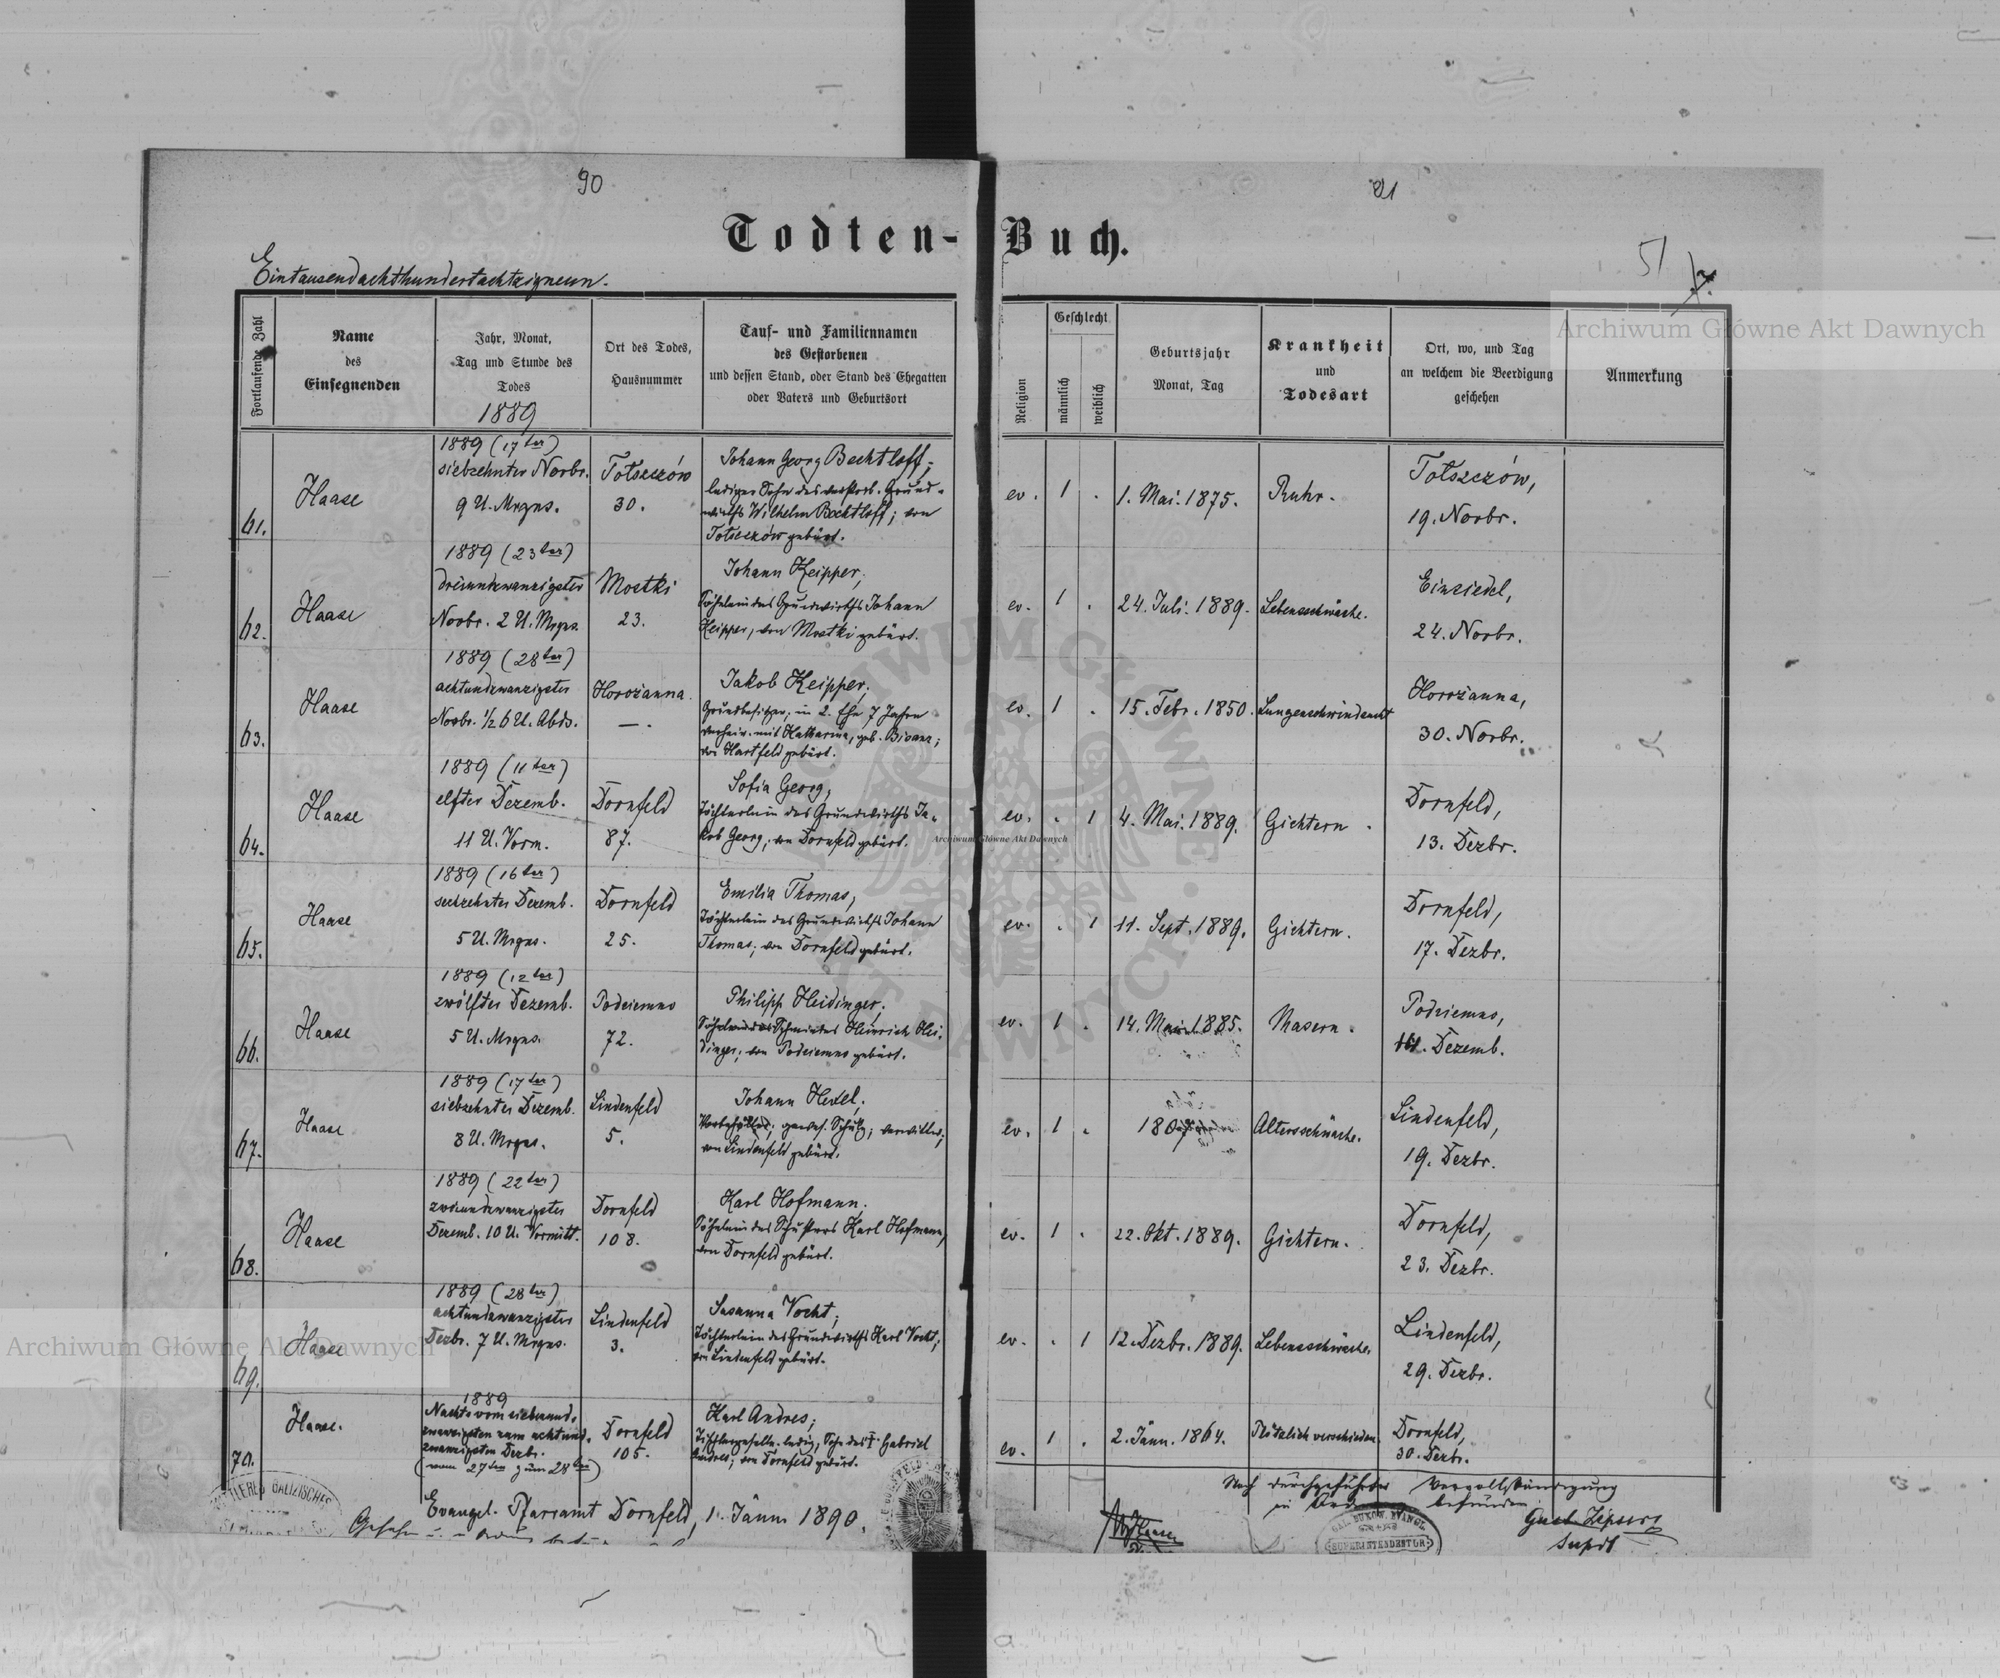 90
91
Todten-Buch.
51
Eintausendachthundertachtzigneun.
Fortlaufende Zahl
Name
des
Einsegnenden
Jahr, Monat,
Tag und Stunde des
Todes
1889
Ort des Todes,
Hausnummer
Tauf- und Familiennamen
des Gestorbenen
und dessen Stand, oder Stand des Ehegatten
oder Vaters und Geburtsort
Religion
Geschlecht
männlich
weiblich
Geburtsjahr
Monat, Tag
Krankheit
und
Todesart
Ort, wo, und Tag
an welchem die Beerdigung
geschehen
Anmerkung
61.
Haase
1889 (17ter)
siebzehnter Novbr.
9 U. Mrgns.
Tołszczów
30.
Johann Georg Bechtloff;
lediger Sohn des verstorb. Grund-
wirths Wilhelm Bechtloff; von
Tołszczów gebürt.
ev.
1
.
1. Mai. 1875.
Ruhr.
Tołszczów,
19. Novbr.
62.
Haase
1889 (23ter)
dreiundzwanzigster
Novbr. 2 U. Mrgns.
Mostki
23.
Johann Keipper;
Söhnlein des Grundwirths Johann
Keipper, von Mostki gebürt.
ev.
1
.
24. Juli. 1889.
Lebensschwäche.
Einsiedel,
24. Novbr.
63.
Haase
1889 (28ter)
achtundzwanzigster
Novbr. 1/2 6 U. Abds.
Horożanna
—.
Jakob Keipper;
Grundbesitzer, in 2. Ehe 7 Jahre
verheir. mit Katharina, geb. Bisanz;
von Hartfeld gebürt.
ev.
1
.
15. Febr. 1850.
Lungenschwindsucht
Horożanna,
30. Novbr.
64.
Haase
1889 (11ter)
elfter Dezemb.
11 U. Vorm.
Dornfeld
87.
Sofia Georg,
Töchterlein des Grundwirths Ja-
kob Georg; von Dornfeld gebürt.
ev.
.
1
4. Mai. 1889.
Gichtern.
Dornfeld,
13. Dezbr.
65.
Haase
1889 (16ter)
sechzehnter Dezemb.
5 U. Mrgns.
Dornfeld
25.
Emilia Thomas,
Töchterlein des Grundwirths Johann
Thomas, von Dornfeld gebürt.
ev.
.
1
11. Sept. 1889.
Gichtern.
Dornfeld,
17. Dezbr.
66.
Haase
1889 (12ter)
zwölfter Dezemb.
5 U. Mrgns.
Podciemno
72.
Philipp Heidinger;
Söhnlein des Schmiedes Heinrich Hei-
dinger; von Podciemno gebürt.
ev.
1
.
14. Mai 1885.
Masern.
Podciemno,
Dezemb.
67.
Haase
1889 (17ter)
siebzehnter Dezemb.
8 U. Mrgns.
Lindenfeld
5.
Johann Hexel;
gewes. Schulz; verwittw;
von Lindenfeld gebürt.
ev.
1
.
1807
Altersschwäche.
Lindenfeld,
19. Dezbr.
68.
Haase
1889 (22ter)
zweiundzwanzigster
Dezemb. 10 U. Vormitt.
Dornfeld
108.
Karl Hofmann;
Söhnlein des Schusters Karl Hofmann,
von Dornfeld gebürt.
ev.
1
.
22. Okt. 1889.
Gichtern.
Dornfeld,
23. Dezbr.
69.
Haase
1889 (28ter)
achtundzwanzigster
Dezbr. 7 U. Mrgns.
Lindenfeld
3.
Susanna Vocht;
Töchterlein des Grundwirths Karl Vocht;
von Lindenfeld gebürt.
ev.
.
1
12. Dezbr. 1889.
Lebensschwäche.
Lindenfeld,
29. Dezbr.
70.
Haase.
1889
Nachts vom siebenund-
zwanzigsten zum achtund-
zwanzigsten Dezbr.
(vom 27ten zum 28ten)
Dornfeld
105.
Karl Andres;
Tischlergeselle, ledig, Sohn des † Gabriel
Andres; von Dornfeld gebürt.
ev.
1
.
2. Jänn. 1864.
Plötzlich verschieden.
Dornfeld,
30. Dezbr.
Evangel. Pfarramt Dornfeld, 1. Jänn. 1890.
Nach durchgeführter Vervollständigung
befunden
Haase
SUPERINTENDENTUR
Supdt
Archiwum Główne Akt Dawnych
Archiwum Główne Akt Dawnych
Archiwum Główne Akt Dawnych
ARCHIWUM GŁÓWNE AKT DAWNYCH